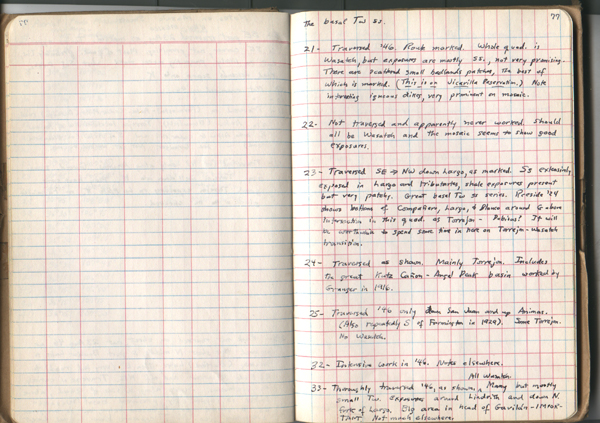 77
the basal Tw ss.
21- Traversed '46. Route marked. Whole quad. is
Wasatch, but exposures are mostly ss., not very promising.
There are scattered small badlands patches, the best of
which is marked. (This is on Jicarilla Reservation.) Note
interesting igneous dikes, very prominent on mosaic.
22- Not traversed and apparently never worked. Should
all be Wasatch and the mosaic seems to show good
exposures.
23- Traversed SE → NW down Largo, as marked. Ss extensively
exposed in Largo and tributaries, shale exposures present
but very patchy. Great basal Tw ss series. Reeside '24
shows bottom of Compañero, Largo, & Blanco around & above
intersection in this quad. as Torrejon - Dubious! It will
be worthwhile to spend some time in here on Torrejon-Wasatch
transition.
24- Traversed as shown. Mainly Torrejon. Includes
the great Kutz Cañon - Angel Peak basin worked by
Granger in 1916.
25- Traversed '46 only down San Juan and up Animas.
(Also repeatedly S of Farmington in 1929). Some Torrejon.
No Wasatch.
32- Intensive work in '46. Notes elsewhere.
All Wasatch.
33- Thoroughly traversed '46, as shown. Many but mostly
small Tw. exposures around Lindrith and down N.
fork of Largo. Big area in head of Gavilan - IMPOR-
TANT. Not much elsewhere.